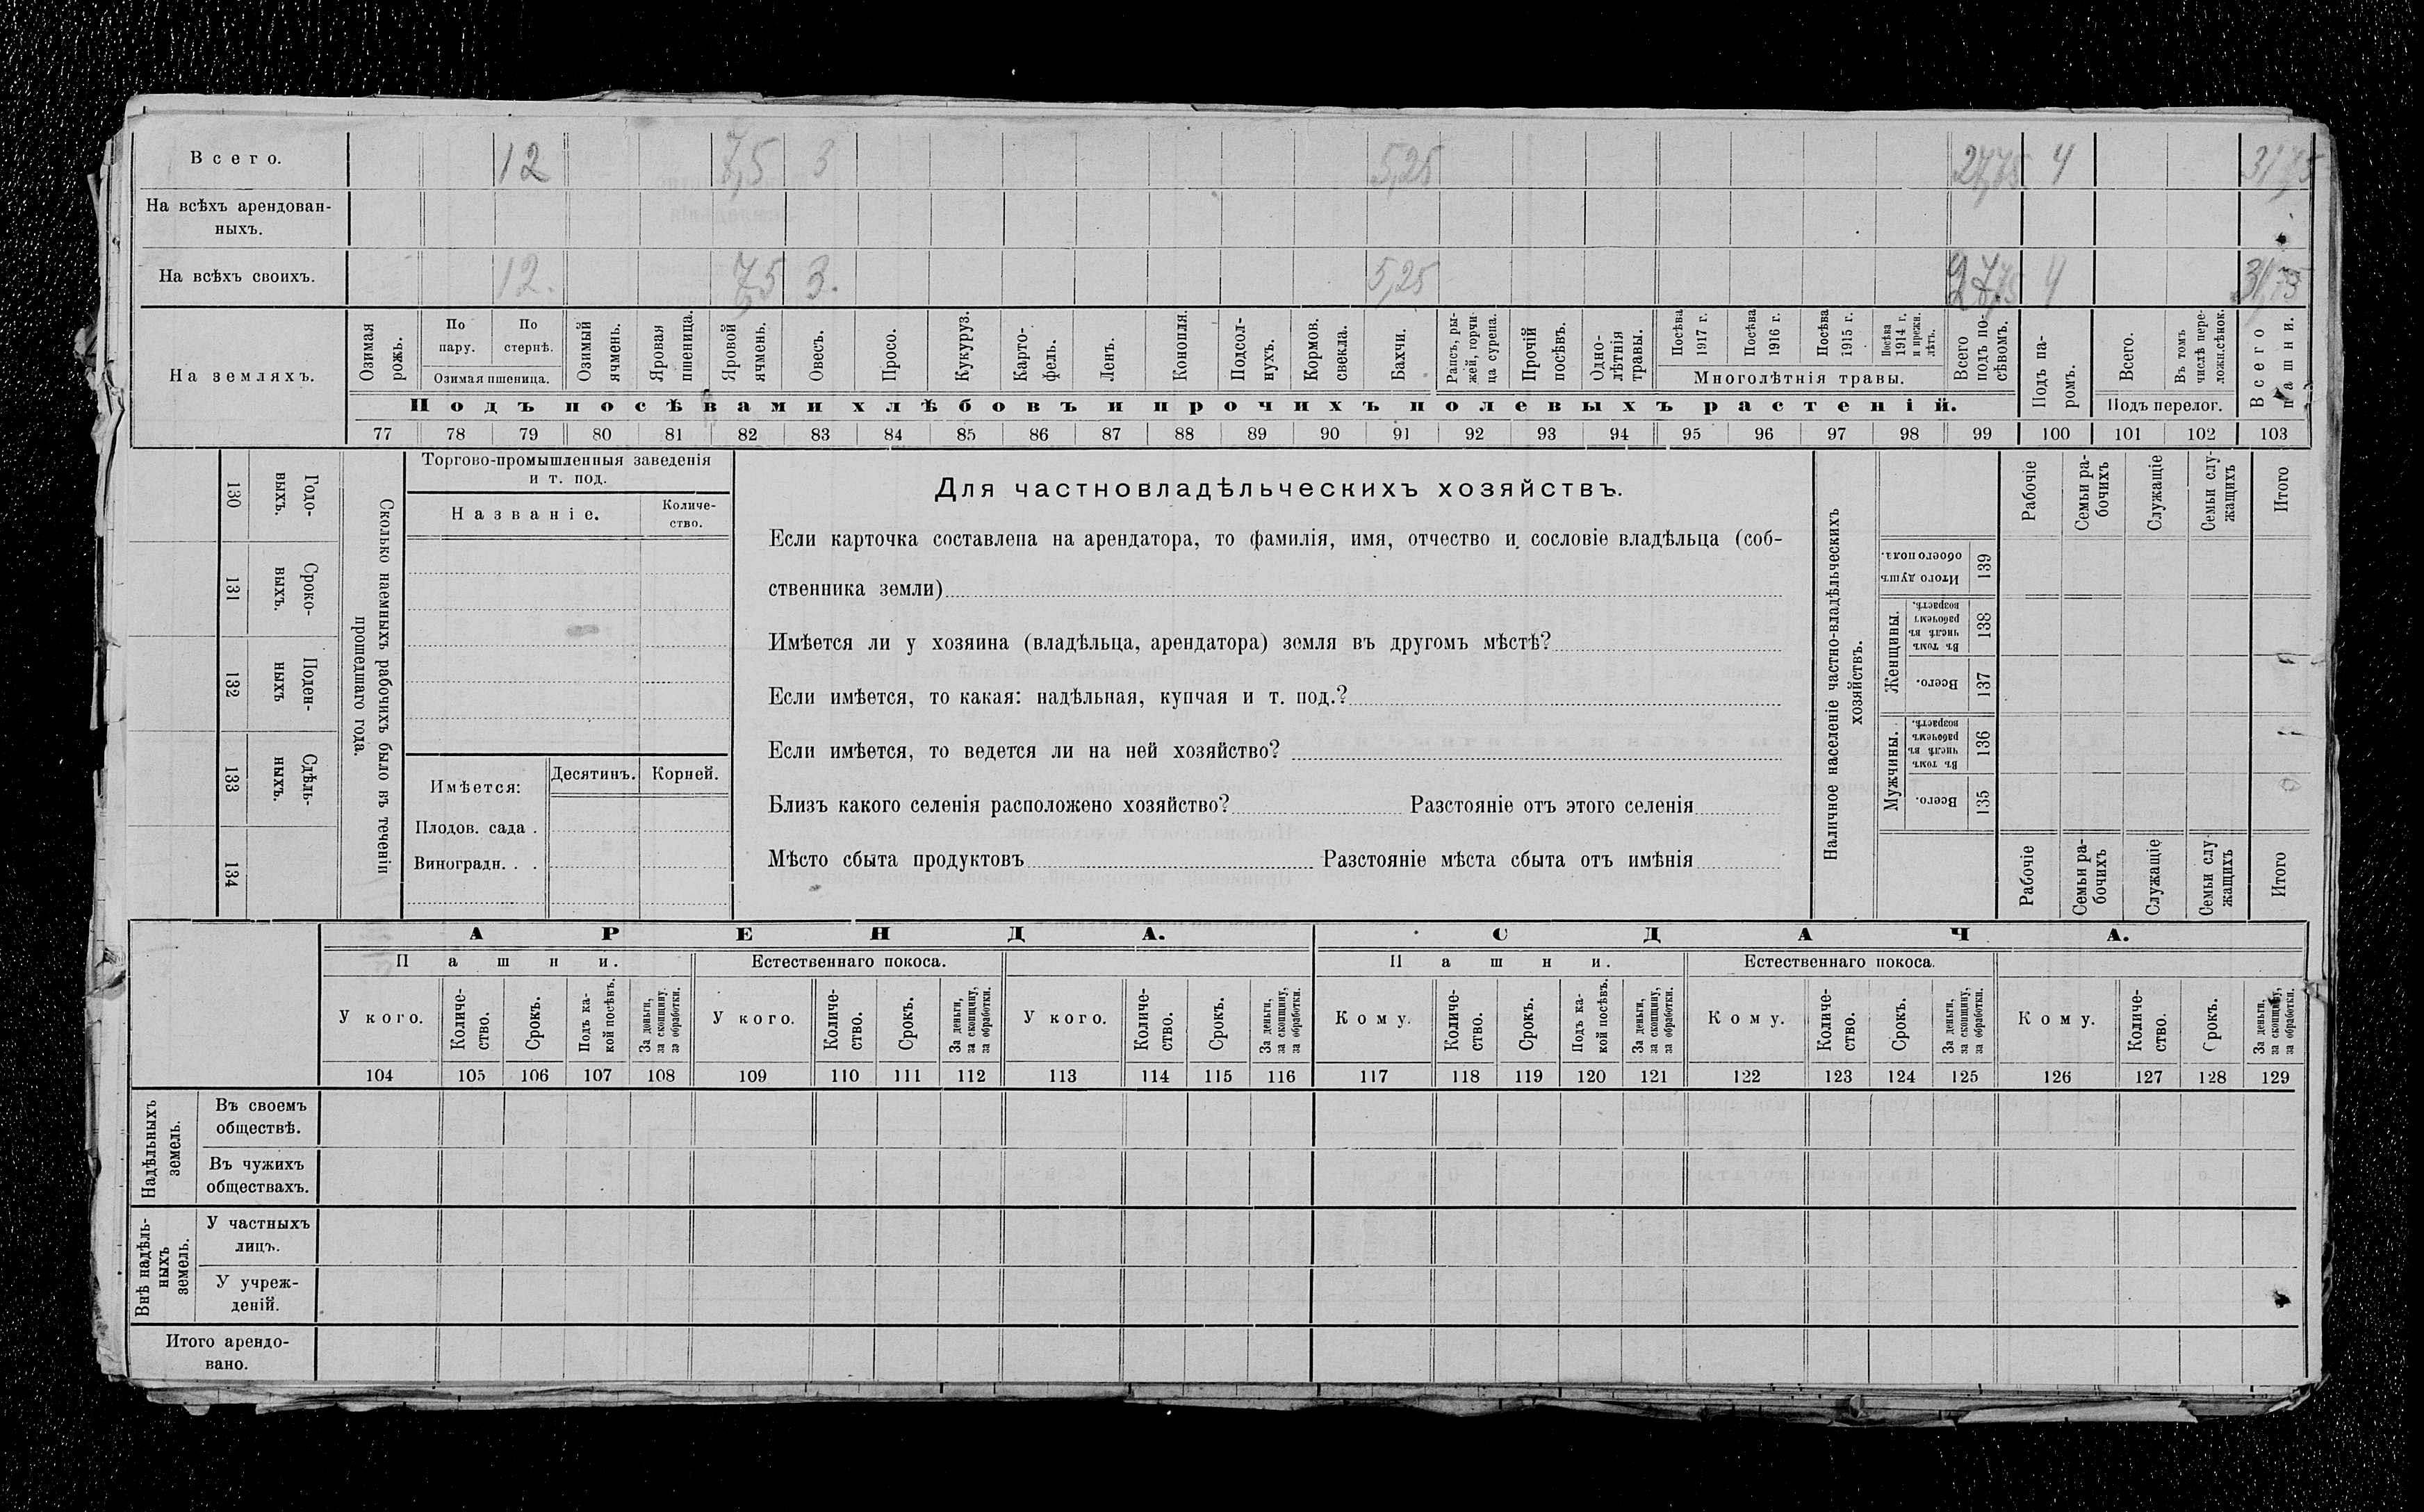 Всего. 12 7,5 3 5,25 27,75 4 31,75
На всѣхъ арендован-
ныхъ.
На всѣхъ своихъ. 12. 7,5 3. 5,25 27,75 4 31,75
На земляхъ.
Озимая рожь.
По пару.
По стернѣ.
Озимая пшеница.
Озимый ячмень.
Яровая пшеница.
Яровой ячмень.
Овесъ.
Просо.
Кукуруз.
Карто-
фель.
Ленъ.
Конопля.
Подсол-
нухъ.
Кормов. свекла.
Бахчи.
Рапсъ, ры-
жей, горчи-
ца сурепа.
Прочій посѣвъ.
Одно-
лѣтнія травы.
Посѣва 1917 г.
Посѣва 1916 г.
Посѣва 1915 г.
Посѣва 1914 г. и прежн. лѣтъ.
Многолѣтнія травы.
Всего подъ по-
сѣвомъ.
Подъ па-
ромъ.
Всего.
Въ томъ числѣ пере-
ложн.сѣнок.
Подъ перелог.
Всего пашни.
Подъ посѣвами хлѣбовъ и прочихъ полевыхъ растеній.
77 78 79 80 81 82 83 84 85 86 87 88 89 90 91 92 93 94 95 96 97 98 99 100 101 102 103
130 Годо-
выхъ.
131 Сроко-
выхъ.
132 Поден-
ныхъ
133 Сдѣль-
ныхъ.
134
Сколько наемныхъ рабочихъ было въ теченіи
прошедшаго года.
Торгово-промышленныя заведенія
и т. под.
Названіе.
Количе-
ство.
Имѣется:
Десятинъ. Корней.
Плодов. сада .
Виноградн. . .
Для частновладѣльческихъ хозяйствъ.
Если карточка составлена на арендатора, то фамилія, имя, отчество и сословіе владѣльца (соб-
ственника земли)
Имѣется ли у хозяина (владѣльца, арендатора) земля въ другомъ мѣстѣ?
Если имѣется, то какая: надѣльная, купчая и т. под.?
Если имѣется, то ведется ли на ней хозяйство?
Близъ какого селенія расположено хозяйство? Разстояніе отъ этого селенія
Мѣсто сбыта продуктовъ Разстояніе мѣста сбыта отъ имѣнія
Наличное населеніе частно-владѣльческихъ
хозяйствъ.
Рабочіе
Семьи ра-
бочихъ
Служащіе
Семьи слу-
жащихъ
Итого
Итого душъ обоего пола. 139
Женщины.
Въ томъ числѣ въ рабочемъ возрастѣ. 138
Всего. 137
Мужчины.
Въ томъ числѣ въ рабочемъ возрастѣ. 136
Всего. 135
Рабочіе
Семьи ра-
бочихъ
Служащіе
Семьи слу
жащихъ
Итого
АРЕНДА. СДАЧА.
Пашни. Естественнаго покоса. Пашни. Естественнаго покоса.
У кого.
Количе-
ство.
Срокъ.
Подъ ка-
кой посѣвъ.
За деньги,
за скопщину,
за обработки.
У кого.
Количе-
ство.
Срокъ.
За деньги,
за скопщину,
за обработки.
У кого.
Количе-
ство.
Срокъ.
За деньги,
за скопщину,
за обработки.
Кому.
Количе-
ство.
Срокъ.
Подъ ка-
кой посѣвъ.
За деньги,
за скопщину,
за обработки.
Кому.
Количе-
ство.
Срокъ.
За деньги,
за скопщину,
за обработки.
Кому.
Количе-
ство.
Срокъ.
За деньги,
за скопщину,
за обработки.
104 105 106 107 108 109 110 111 112 113 114 115 116 117 118 119 120 121 122 123 124 125 126 127 128 129
Надѣльныхъ
земель.
Въ своемъ
обществѣ.
Въ чужихъ
обществахъ.
Внѣ надѣль-
ныхъ
земель.
У частныхъ
лицъ.
У учреж-
деній.
Итого арендо-
вано.